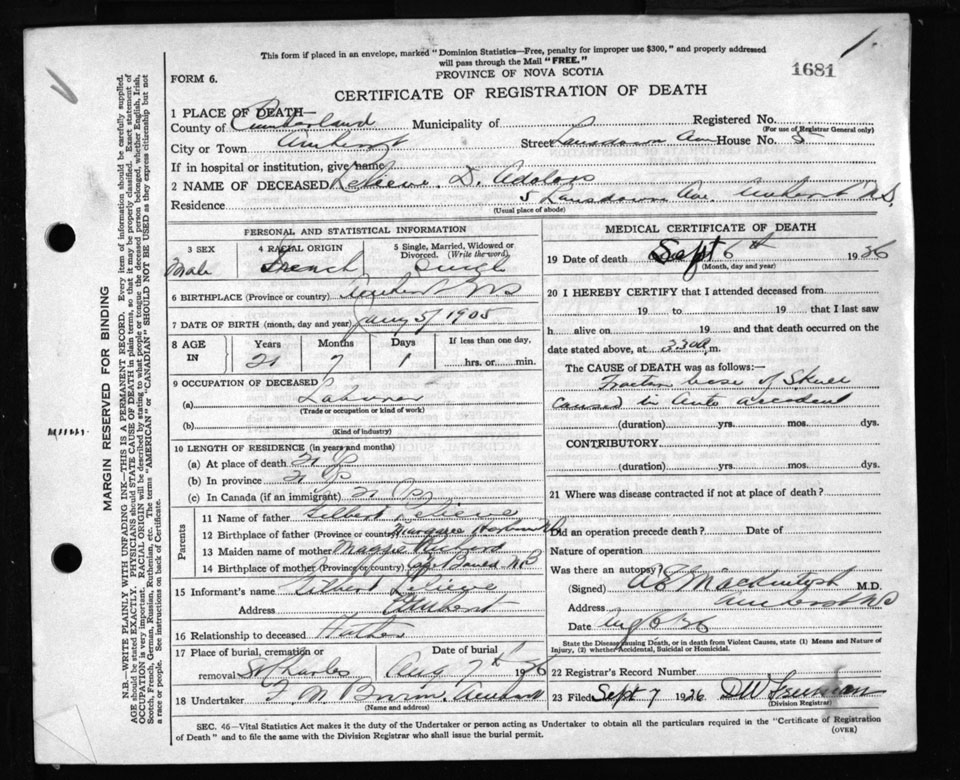 This form if placed in an envelope, marked "Dominion Statistics—Free, penalty for improper use $300," and properly addressed
will pass through the Mail "FREE."
FORM 6.
PROVINCE OF NOVA SCOTIA
1681
CERTIFICATE OF REGISTRATION OF DEATH
1 PLACE OF DEATH—
County of Cumberland Municipality of Registered No.
(For use of Registrar General only)
City or Town Amherst Street Lansdown Ave House No. 5
If in hospital or institution, give name
2 NAME OF DECEASED D.
Residence 5 Lansdown Ave. Amherst N.S.
(Usual place of abode)
PERSONAL AND STATISTICAL INFORMATION
3 SEX 4 RACIAL ORIGIN 5 Single, Married, Widowed or Divorced. (Write the word)
Male French Single
6 BIRTHPLACE (Province or country) Amherst NS
7 DATE OF BIRTH (month, day and year) 5/1905
8 AGE IN Years Months Days If less than one day,
21 7 1 hrs. or min.
9 OCCUPATION OF DECEASED
(a) Labourer
(Trade or occupation or kind of work)
(b)
(Kind of industry)
10 LENGTH OF RESIDENCE (in years and months)
(a) At place of death 21
(b) In province 21
(c) In Canada (if an immigrant) 21
Parents
11 Name of father Gilbert
12 Birthplace of father (Province or country)
13 Maiden name of mother Maggie
14 Birthplace of mother (Province or country) NB
15 Informant's name Gilbert
Address Amherst
16 Relationship to deceased Father
17 Place of burial, cremation or removal St Charles Date of burial Aug 7th 1926
18 Undertaker Amherst
(Name and address)
MEDICAL CERTIFICATE OF DEATH
19 Date of death Sept 6th 1926
(Month, day and year)
20 I HEREBY CERTIFY that I attended deceased from
19 to 19 that I last saw
h alive on 19 and that death occurred on the
date stated above, at 3 30 a.m.
The CAUSE OF DEATH was as follows:—
Fracture base of Skull
caused by Auto accident
(duration) yrs. mos. dys.
CONTRIBUTORY
(duration) yrs. mos. dys.
21 Where was disease contracted if not at place of death?
Did an operation precede death? Date of
Nature of operation
Was there an autopsy?
(Signed) M.D.
Address Amherst NS
Date Aug 6/26
State the Disease causing Death, or in death from Violent Causes, state (1) Means and Nature of
Injury, (2) whether Accidental, Suicidal or Homicidal.
22 Registrar's Record Number
23 Filed Sept 7 1926
(Division Registrar)
SEC. 46—Vital Statistics Act makes it the duty of the Undertaker or person acting as Undertaker to obtain all the particulars required in the "Certificate of Registration
of Death" and to file the same with the Division Registrar who shall issue the burial permit.
(OVER)
MARGIN RESERVED FOR BINDING
N.B.—WRITE PLAINLY WITH UNFADING INK—THIS IS A PERMANENT RECORD. Every item of information should be carefully supplied.
AGE should be stated EXACTLY. PHYSICIANS should STATE CAUSE OF DEATH in plain terms, so that it may be properly classified. Exact statement of
OCCUPATION is very important. RACIAL ORIGIN will be described by stating to what people or tongue the deceased person belonged, whether English, Irish,
Scotch, French, German, Russian, Ruthenian, etc. The terms "AMERICAN" or "CANADIAN" SHOULD NOT BE USED as they express citizenship but not
a race or people. See instructions on back of Certificate.